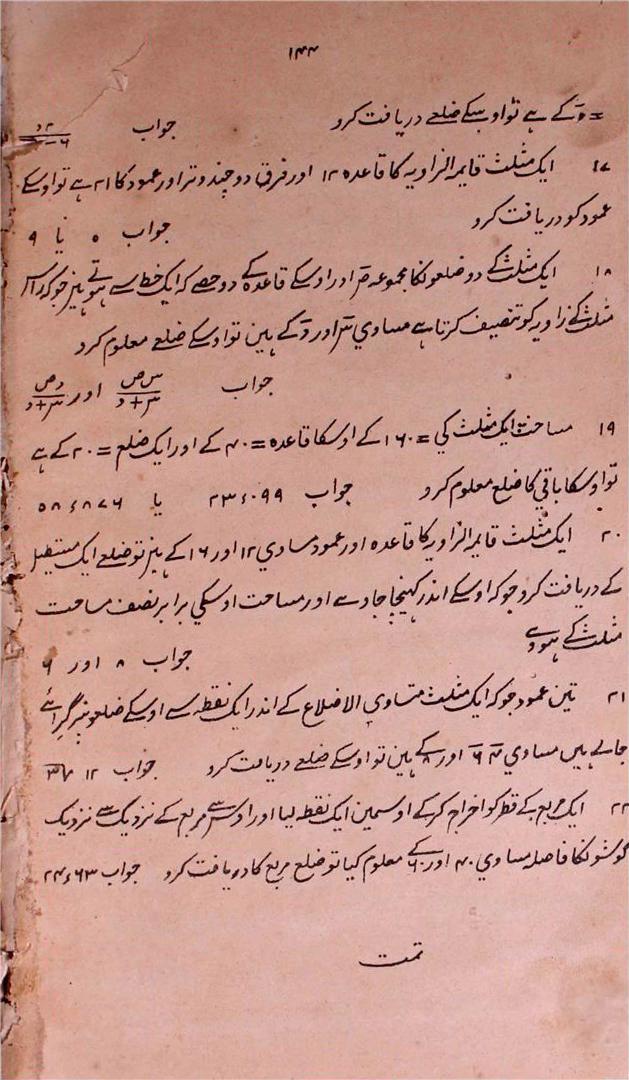 ۱۴۴
= ؔد کے ہے تو اوسکے ضلعے دریافت کرو جواب
۱۷ ایک مثلث قایمہ الزاویہ کا قاعدہ ۱۲ اور فرق دوچند وتر اور عمود کا ۲۱ ہے تو اوسکے
عمود کو دریافت کرو جواب ۵ یا ۹
۱۸ ایک مثلث کے دو ضلعونکا مجموعہ ص اور اوسکے قاعدہ کے دو حصے کہ ایک خط سے ہوتے ہین جو کہ راس
مثلث کے زاویہ کو تنصیف کرتا ہے مساوي س اور د کے ہین تو اوسکے ضلعے معلوم کرو
جواب س ص / س + د اور د ص / س + د
۱۹ مساحت ایک مثلث کي = ۱۶۰ کے اوسکا قاعدہ = ۴۰ کے اور ایک ضلع = ۲۰ کے ہے
تو اوسکا باقي کا ضلع معلوم کرو جواب ۲۳٫۰۹۹ یا ۵۸٫۸۷۶
۲۰ ایک مثلث قایمہ الزاویہ کا قاعدہ اور عمود مساوي ۱۲ اور ۱۶ کے ہین تو ضلعے ایک مستطیل
کے دریافت کرو جو کہ اوسکے اندر کہینچا جاوے اور مساحت اوسکي برابر نصف مساحت
مثلث کے ہووے جواب ۸ اور ۶
۲۱ تین عمود جو کہ ایک مثلث متساوي الاضلاع کے اندر ایک نقطہ سے اوسکے ضلعونپر گرائے
جاتے ہیں مساوي ۴ ۶ اور ۸ کے ہین تو اوسکے ضلعے دریافت کرو جواب ۱۲ √۳
۲۲ ایک مربع کے قطر کو اخراج کرکے اوسمین ایک نقطہ لیا اور اوس سے مربع کے نزدیک سے نزدیک
گوشونکا فاصلہ مساوي ۴۰ اور ۶۰ کے معلوم کیا تو ضلع مربع کا دریافت کرو جواب ۲۴٫۶۳
تمت